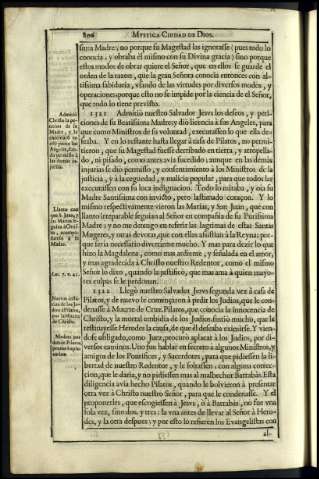 MYSTICA CIUDAD DE DIOS.
suya Madre, no porque su Magestad las ignorasse (pues todo lo
conocia, y obraba el mismo con su Divina gracia) sino porque
estos modos de obrar quiere el Señor, que en ellos se guarde el
orden de la razon, que la gran Señora conocia entonces con al-
tissima sabiduria, usando de las virtudes por diversos modos, y
operaciones, porque esto no se impide por la ciencia de el Señor,
que todo lo tiene previsto.
1321 Admitiò nuestro Salvador Jesus los deseos, y peti-
ciones de su Beatissima Madre, y diò licencia à sus Angeles, para
que como Ministros de su voluntad, executassen lo que ella de-
seaba. Y en lo restante hasta llegar à casa de Pilatos, no permi-
tieron, que su Magestad fuesse derribado en tierra, y atropella-
do, ni pisado, como antes avia sucedido; aunque en las demàs
injurias se diò permisso, y consentimiento à los Ministros de la
justicia, y à la ceguedad, y malicia popular, para que todos las
executassen con su loca indignacion. Todo lo miraba, y oìa su
Madre Santissima con invicto, pero lastimado coraçon. Y lo
mismo respectivamente vieron las Marias, y San Juan, que con
llanto irreparable seguian al Señor en compañia de su Purissima
Madre; y no me detengo en referir las lagrimas de estas Santas
Mugeres, y otras devotas, que con ellas assistian à la Reyna; por-
que seria necessario divertirme mucho. Y mas para dezir lo que
hizo la Magdalena, como mas ardiente, y señalada en el amor,
y mas agradecida à Christo nuestro Redentor, como el mismo
Señor lo dixo, quando la justificò, que mas ama à quien mayo-
res culpas se le perdonan.
1322 Llegò nuestro Salvador Jesus segunda vez à casa de
Pilatos, y de nuevo le començaron à pedir los Judios, que le con-
denasse à Muerte de Cruz. Pilatos, que conocia la innocencia de
Christo, y la mortal embidia de los Judios sintiò mucho, que le
restituyesse Herodes la causa, de que èl deseaba eximirse. Y vien-
dose obligado, como Juez, procurò aplacar à los Judios, por di-
versos caminos. Uno fue hablar en secreto à algunos Ministros, y
amigos de los Pontifices, y Sacerdotes, para que pidiessen la li-
bertad de nuestro Redentor, y le soltassen con alguna correc-
cion, que le daria, y no pidiessen mas al malhechor Barrabàs. Esta
diligencia avia hecho Pilatos, quando le bolvieron à presentar
otra vez à Christo nuestro Señor, para que le condenasse. Y el
proponerles, que escogiessen à Jesus, ò à Barrabàs, no fue una
sola vez, sino dos, y tres: la una antes de llevar al Señor à Hero-
des, y la otra despues; y por esto lo refieren los Evangelistas con
Luc. 7. v. 47.